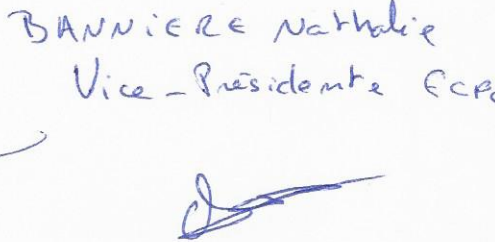 BANNIERE Nathalie
Vice-Présidente